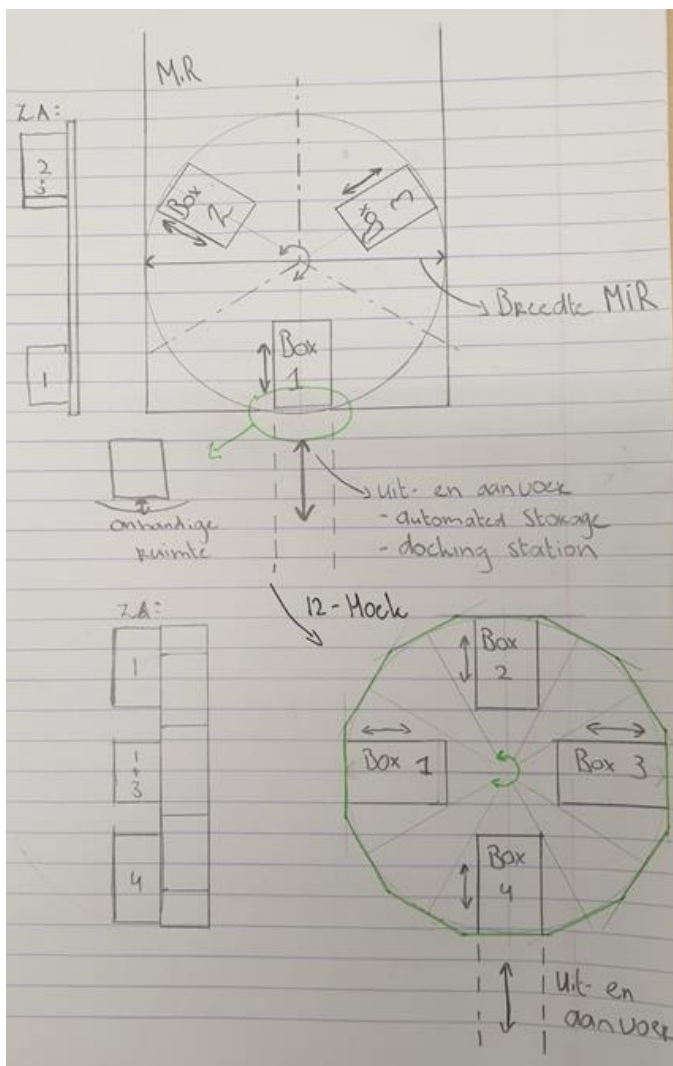 M.R
ZA:
2
+
3
Box
2
Box
3
Breedte MiR
Box
1
1
onhandige
ruimte
uit- en aanvoer
- automated storage
- docking station
12-Hoek
ZA:
1
1
+
3
4
Box
2
Box 1
Box 3
Box
4
Uit- en
aanvoer